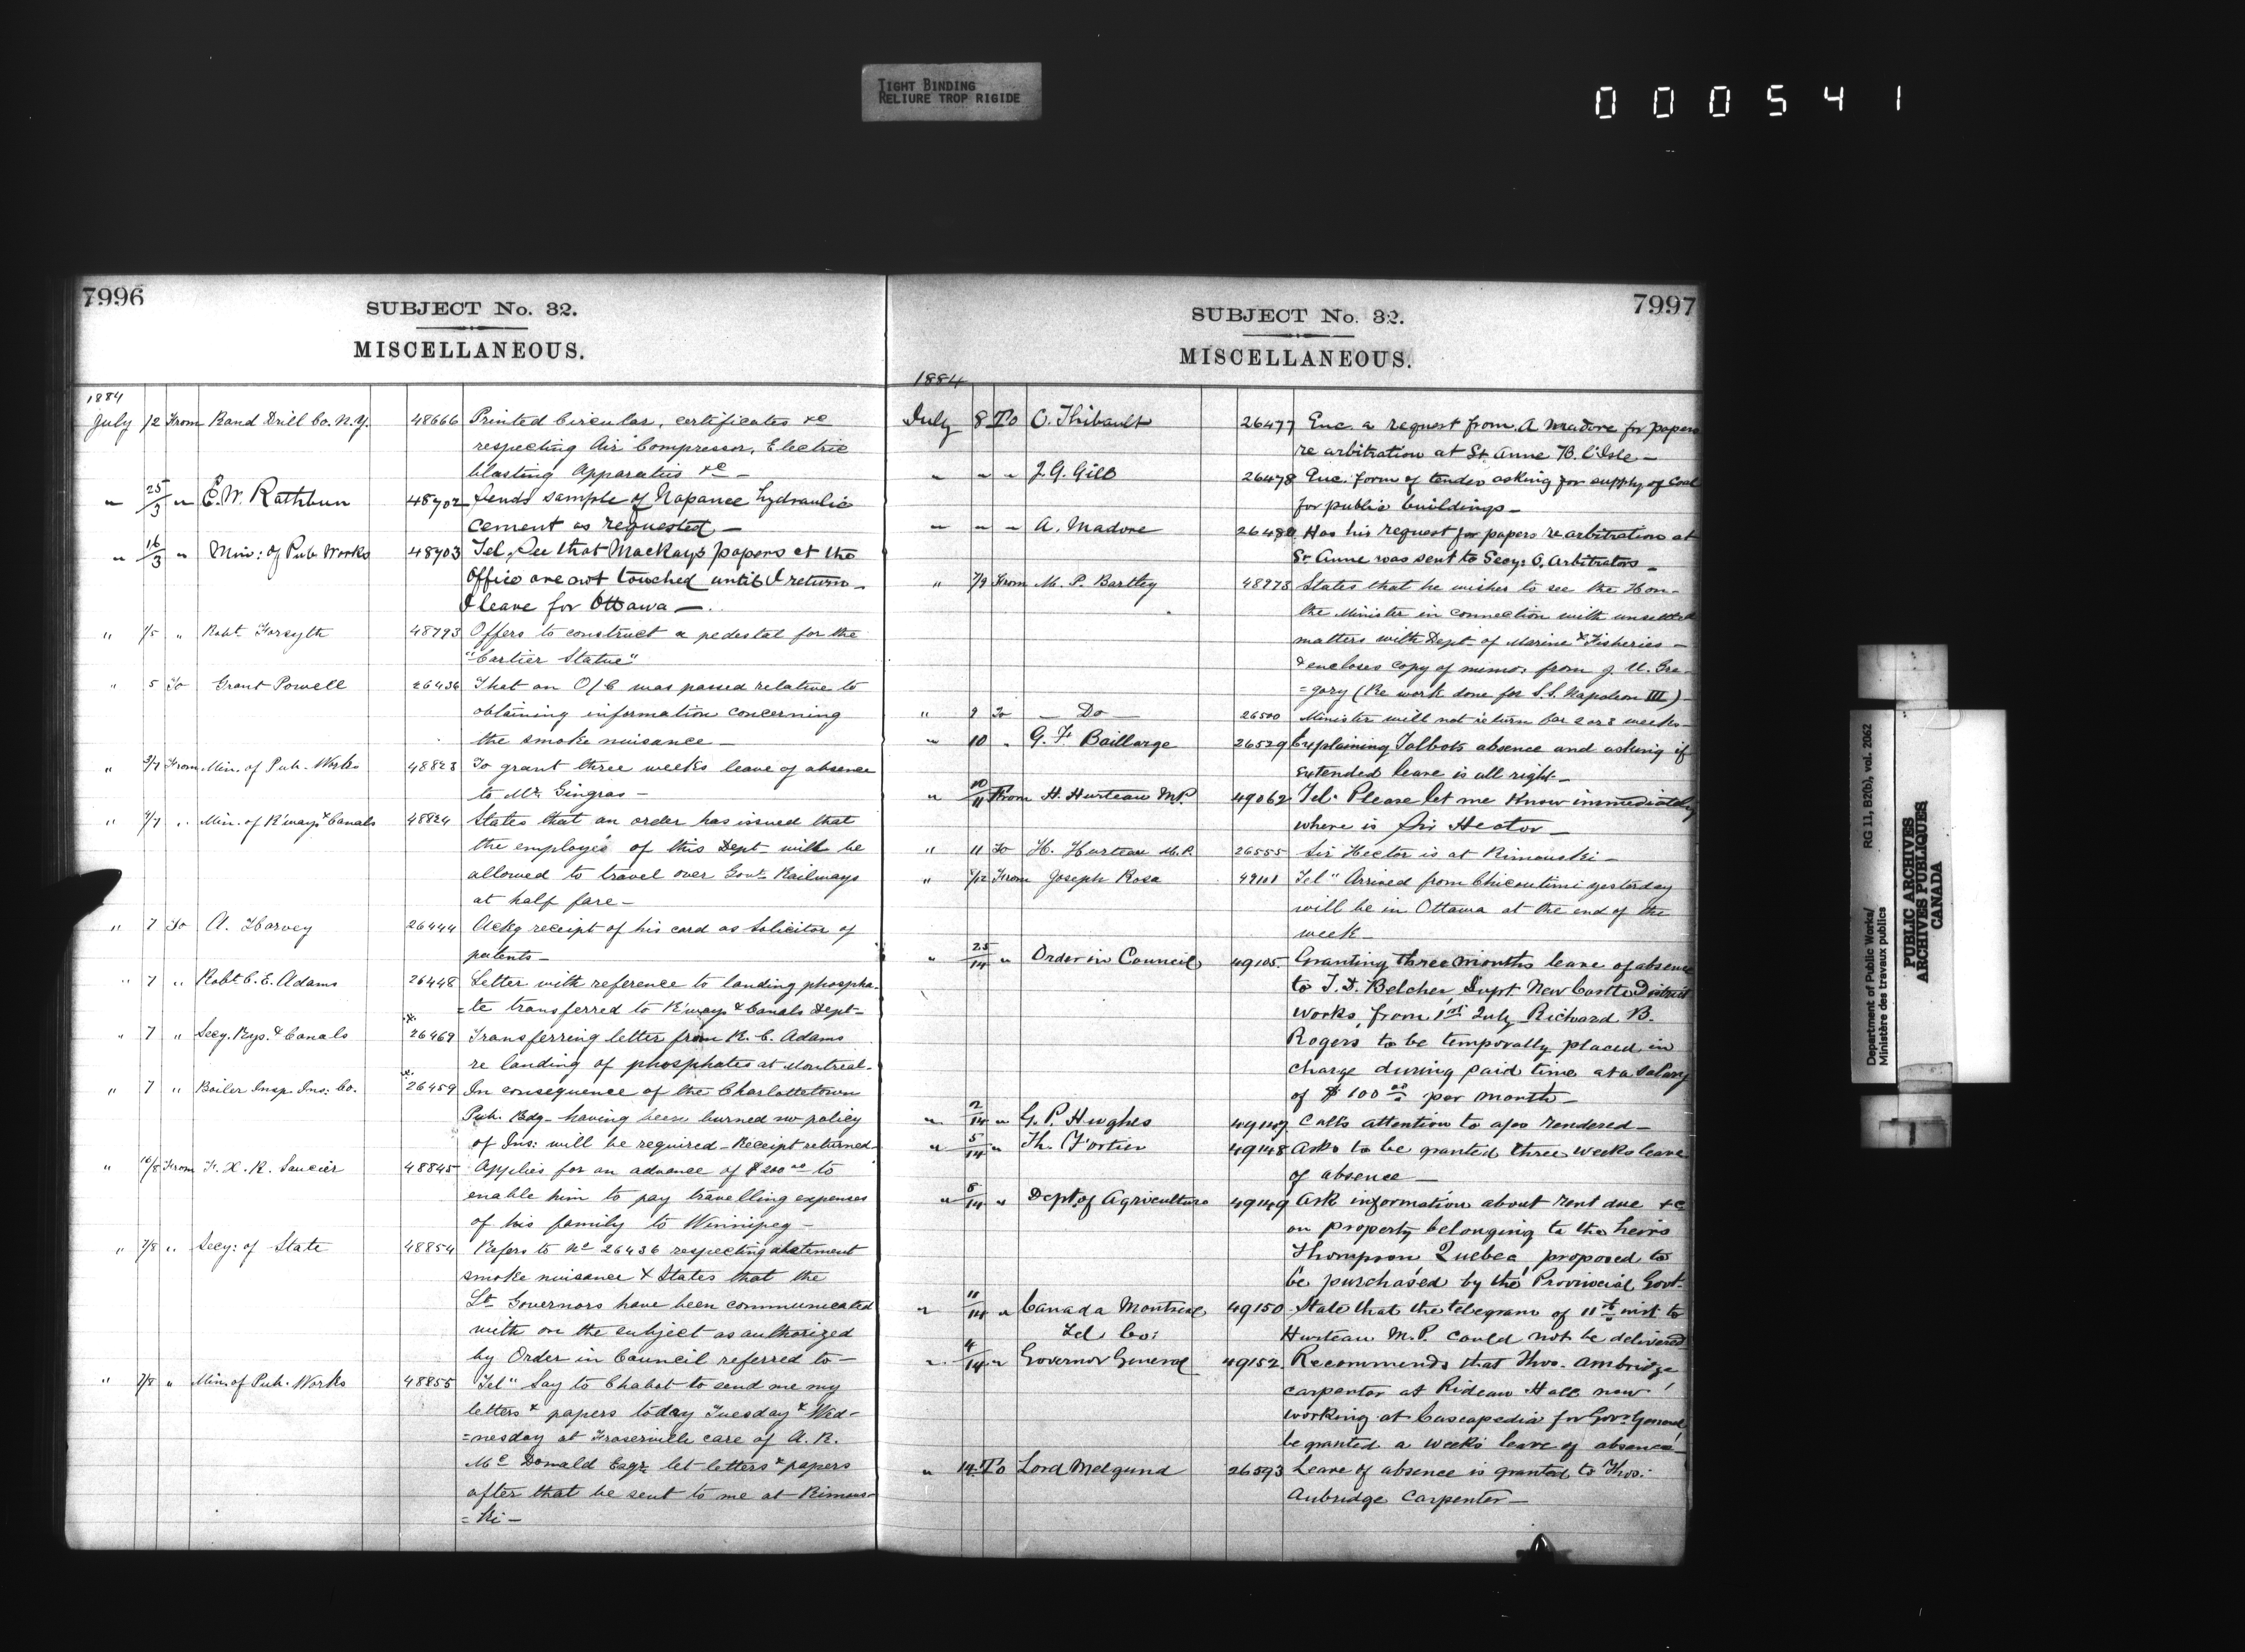 TIGHT BINDING
RELIURE TROP RIGIDE
000541
7996
SUBJECT No. 32.
MISCELLANEOUS.
1884
July 1/2 From Rand Drill Co. N.Y. 48666 Printed Circular, certificates &c
respecting Air Compressor, Electric
blasting Apparatus &c —
" 25/3 " E. W. Rathbun 48702 Sends sample of Napanee hydraulic
cement as requested —
" 16/3 " Min: of Pub Works 48703 Tel. See that Mackay's papers at the
Office are not touched until I return —
I leave for Ottawa —
" 1/5 " Robt Forsyth 48793 Offers to construct a pedestal for the
"Cartier Statue"
" 5 To Grant Powell 26436 That an O/C was passed relative to
obtaining information concerning
the smoke nuisance —
" 3/7 From Min. of Pub. Works 48823 To grant three weeks leave of absence
to Mr. Gingras —
" 7/7 " Min. of R'ways & Canals 48824 States that an order has issued that
the employés of this Dept. will be
allowed to travel over Govt. Railways
at half fare —
" 7 To A. Harvey 26444 Ackg receipt of his card as Solicitor of
patents —
" 7 " Robt. C. E. Adams 26448 Letter with reference to landing phospha-
=te transferred to R'ways & Canals Dept —
" 7 " Secy. Rys. & Canals 26469 Transferring letter from R. C. Adams
re landing of phosphates at Montreal.
" 7 " Boiler Insp. Ins: Co. 26459 In consequence of the Charlottetown
Pub. Bdg. having been burned no policy
of Ins: will be required — Receipt returned —
" 16/8 From F. X. R. Saucier 48845 Applies for an advance of $200 00 to
enable him to pay travelling expenses
of his family to Winnipeg —
" 7/8 " Secy: of State 48854 Refers to No 26436 respecting abatement
smoke nuisance & States that the
Lt. Governors have been communicated
with on the subject as authorized
by Order in Council referred to —
" 7/8 " Min. of Pub. Works 48855 "Tel" Say to Chabot to send me my
letters & papers today Tuesday & Wed-
=nesday at Fraserville care of A. R.
Mc Donald Esqr. let letters & papers
after that be sent to me at Rimous-
=ki —
7997
SUBJECT No. 32.
MISCELLANEOUS.
1884
July 8 To C. Thibault 26477 Enc. a request from A Madore for papers
re arbitration at St. Anne B. l'Isle —
" " " J. G. Gill 26478 Enc. form of tender asking for supply of Coal
for public buildings —
" " " A. Madore 26480 Has his request for papers re arbitration at
St. Anne was sent to Secy: O. Arbitrators —
" 7/9 From M. P. Bartley 48978 States that he wishes to see the Hon.
the Minister in connection with unsettled
matters with Dept. of Marine & Fisheries —
& encloses copy of memo: from J. U. Gre-
=gory (Re work done for S.S. Napoleon III) —
" 9 To — Do — 26500 Minister will not return for 2 or 3 weeks —
" 10 " G. F. Baillarge 26529 Explaining Talbots absence and asking if
extended leave is all right —
" 10/11 From H. Hurteau M.P. 49062 Tel. Please let me know immediately
where is Sir Hector —
" 11 To H. Hurteau M.P. 26555 Sir Hector is at Rimouski —
" /12 From Joseph Rosa 49101 "Tel" Arrived from Chicoutimi yesterday
will be in Ottawa at the end of the
week —
" 25/14 " Order in Council 49105. Granting three months leave of absence
to T. D. Belcher, Supt. New Castle District
Works, from 1st July. Richard B.
Rogers to be temporally placed in
charge during paid time at a salary
of $100 00 per month —
" 2/14 " G. P. Hughes 49147 Calls attention to a/cs rendered —
" 5/14 " Th. Fortier 49148 Asks to be granted three weeks leave
of absence —
" 8/14 " Dept. of Agriculture 49149 Ask information about rent due &c
on property belonging to the heirs
Thompson, Quebec, proposed to
be purchased by the Provincial Govt.
" 11/14 " Canada Montreal 49150 State that the telegram of 11th inst to
Tel. Co: Hurteau M.P. could not be delivered
" 4/14 " Governor General 49152. Recommends that Thos. Ambridge
carpenter at Rideau Hall now
working at Cascapedia for Gov. General
be granted a week's leave of absence —
" 14 To Lord Melgund 26593 Leave of absence is granted to Thos.
Aubridge Carpenter —
Department of Public Works/ RG 11, B2(b), vol. 2062
Ministère des travaux publics
PUBLIC ARCHIVES
ARCHIVES PUBLIQUES
CANADA